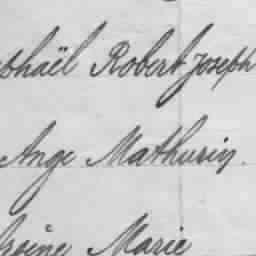 phaël Robert Joseph
Ange Mathurin.
Marie